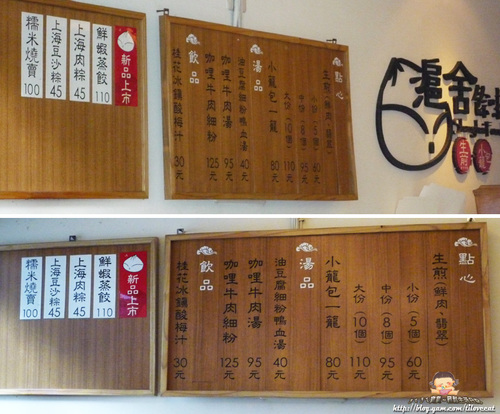 新品上市
鮮蝦蒸餃 110
上海肉粽 45
上海豆沙粽 45
糯米燒賣 100
點心
生煎(鮮肉、翡翠)
小份(5個) 60元
中份(8個) 95元
大份(10個) 110元
小籠包一籠 80元
湯品
油豆腐細粉鴨血湯 40元
咖哩牛肉湯 95元
咖哩牛肉細粉 125元
飲品
桂花冰鎮酸梅汁 30元
滬舍
生煎
小
新品上市
鮮蝦蒸餃 110
上海肉粽 45
上海豆沙粽 45
糯米燒賣 100
點心
生煎(鮮肉、翡翠)
小份(5個) 60元
中份(8個) 95元
大份(10個) 110元
小籠包一籠 80元
湯品
油豆腐細粉鴨血湯 40元
咖哩牛肉湯 95元
咖哩牛肉細粉 125元
飲品
桂花冰鎮酸梅汁 30元
http://blog.yam.com/tiloveeat